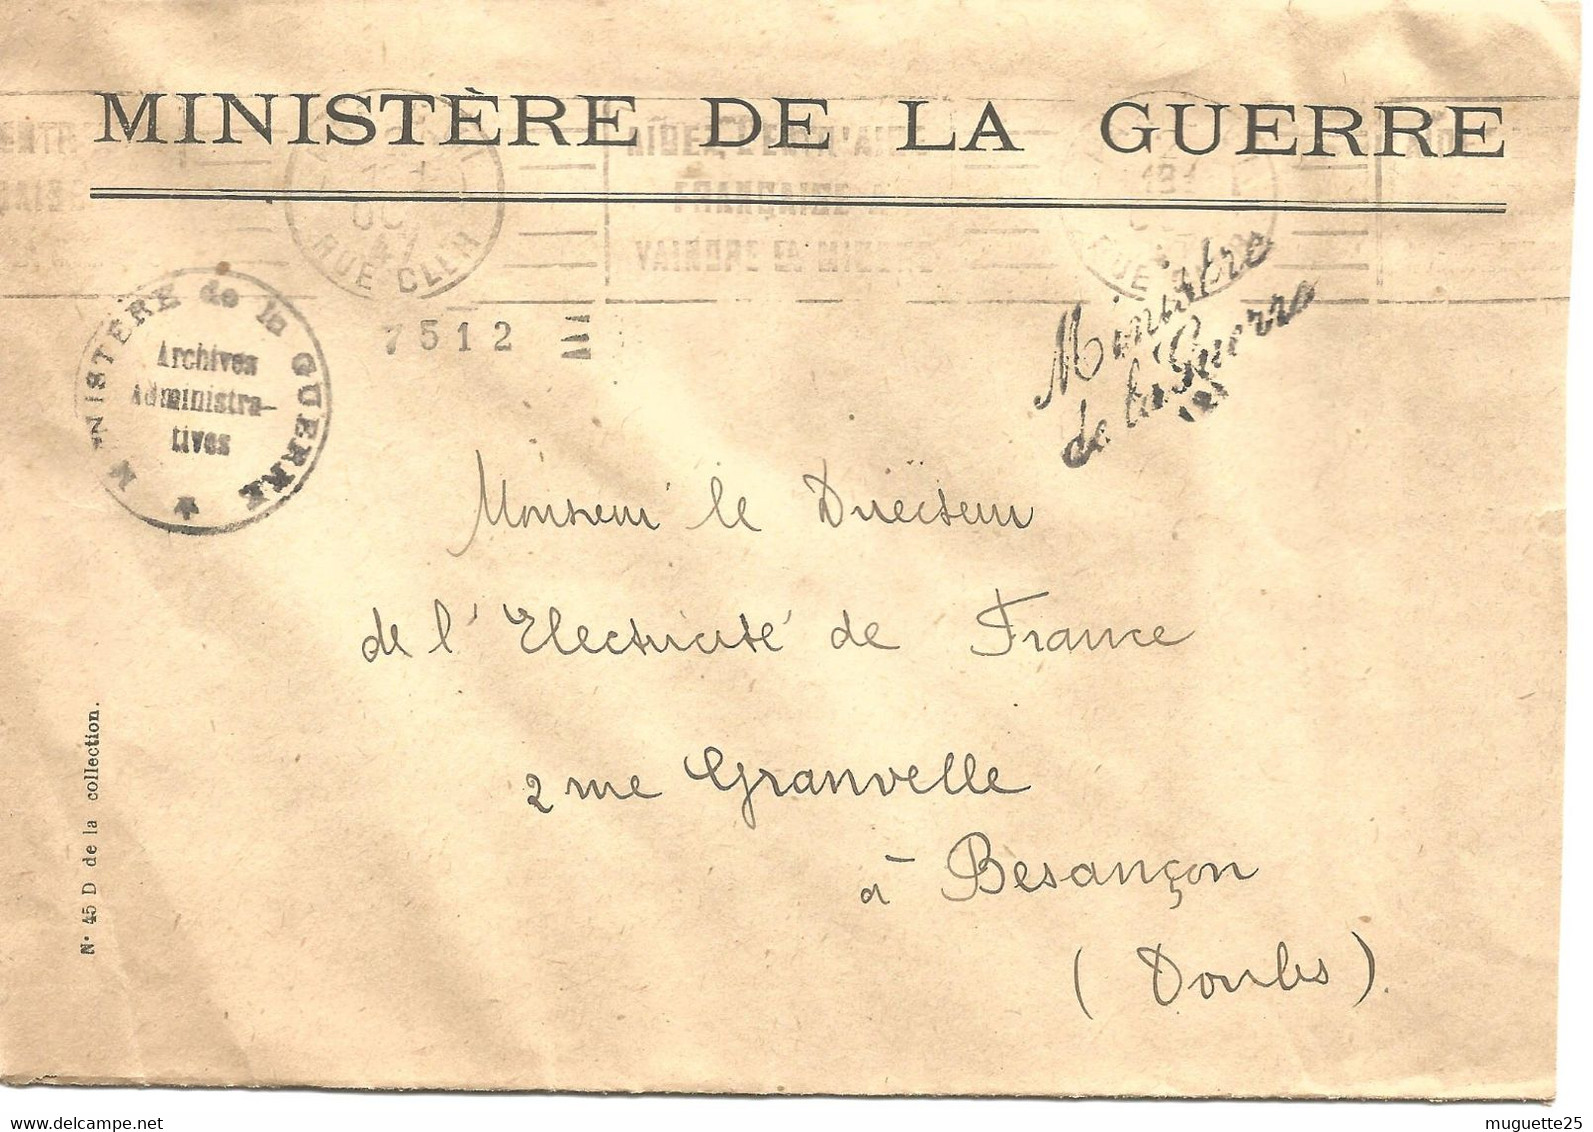 MINISTÈRE DE LA GUERRE
AIDEZ L'ENTR'AIDE
FRANÇAISE A
VAINCRE LA MISÈRE
RUE CLER
7512
MINISTÈRE de la GUERRE
Archives
Administra-
tives
Ministre
de la Guerre
Monsieur le Directeur
de l'Electricité de France
2 rue Granvelle
à Besançon
(Doubs).
N° 45 D de la collection.
muguette25